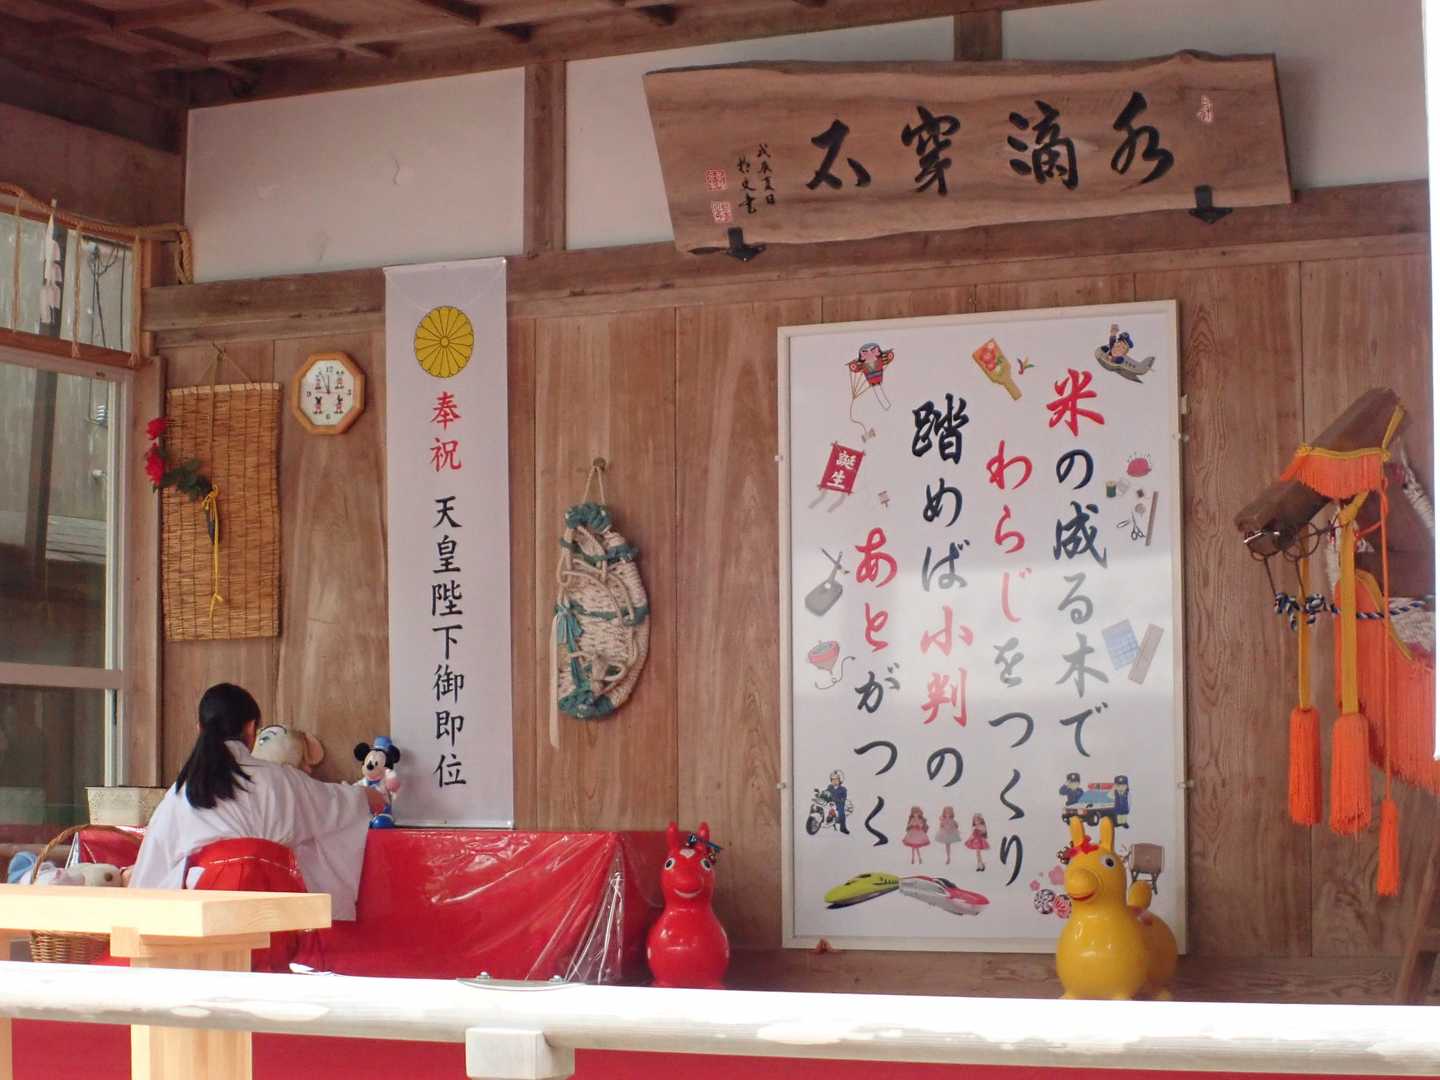 水滴穿石
戊辰夏日
奉祝 天皇陛下御即位
米の成る木で
わらじをつくり
踏めば小判の
あとがつく
誕生
12
3
6
9